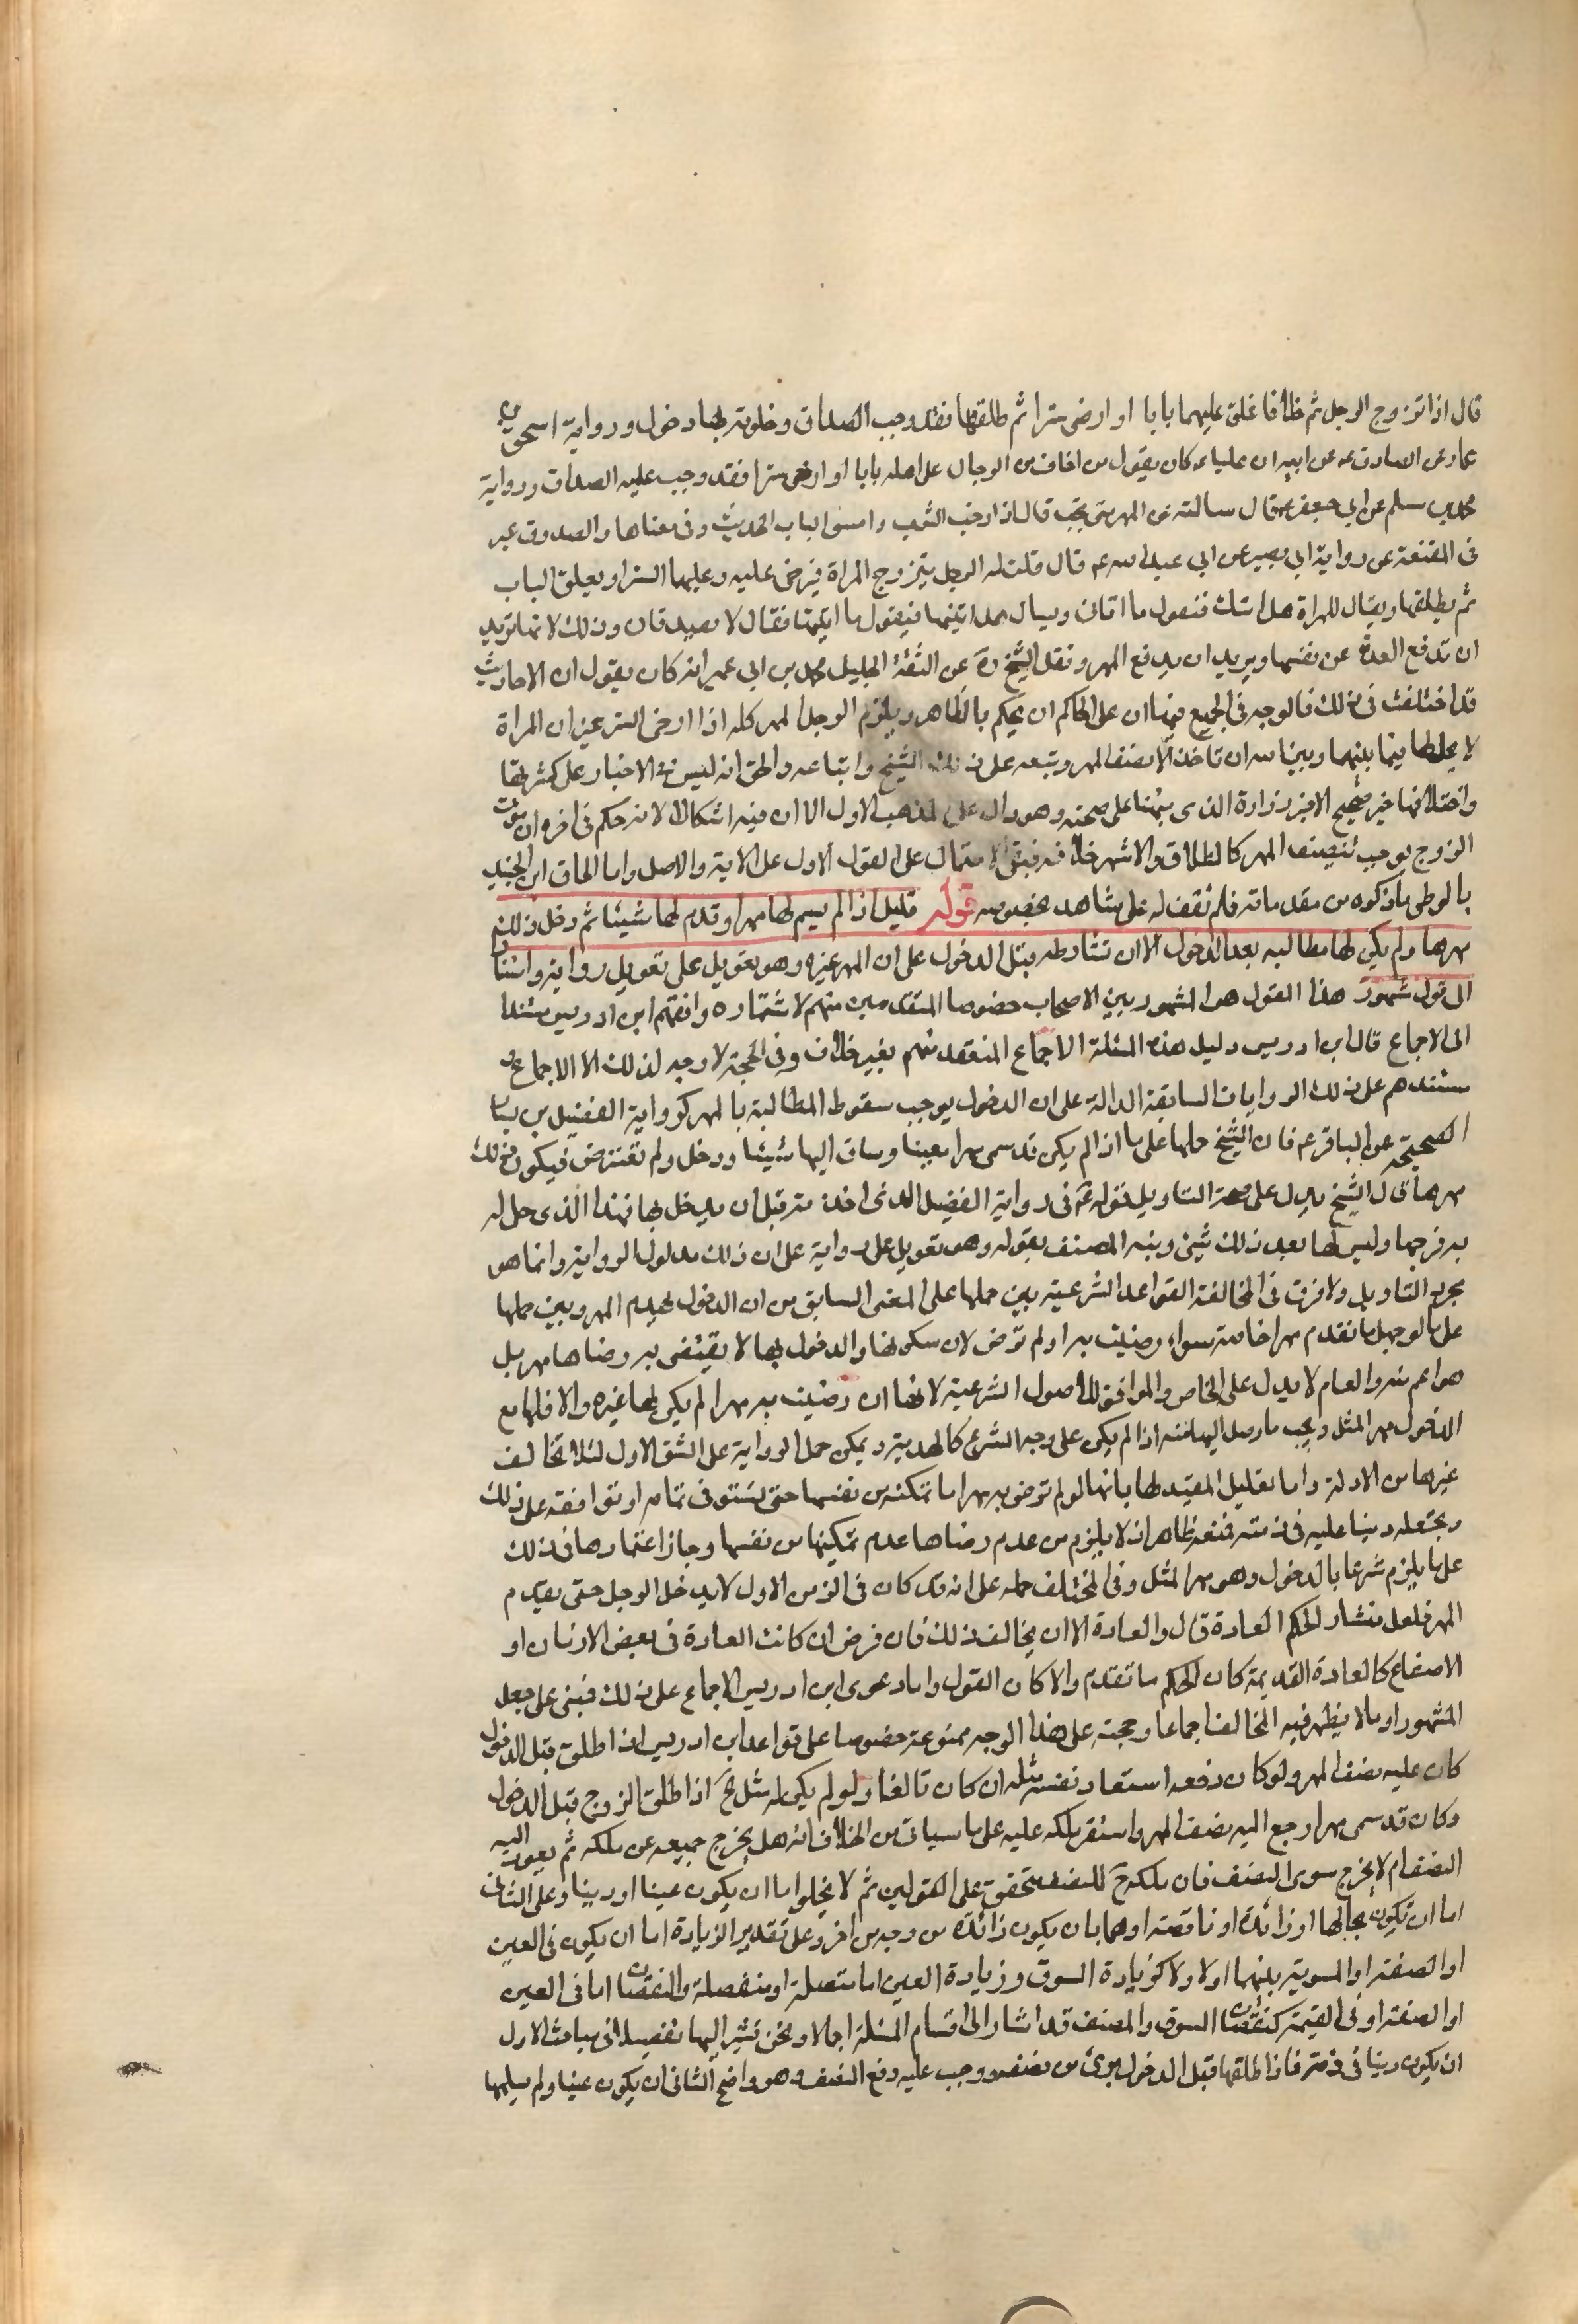 قال اذا تزوج الرجل ثم خلا فاغلق عليهما بابا او ارخى سترا ثم طلقها فقد وجب الصداق وخلوته بها دخول ورواية اسحق بن
عمار عن الصادق ع عن ابيه ان عليا ع كان يقول من اجاف من الرجال على اهله بابا او ارخى سترا فقد وجب عليه الصداق ورواية
محمد بن مسلم عن ابي جعفر ع قال سالته عن المهر متى يجب قال اذا ارخيت الستور واجيف الباب الحديث وفي معناها والصدوق
في المقنعة عن رواية ابي بصير عن ابي عبد الله ع قال قلت له الرجل يتزوج المراة فيرخى عليه وعليها الستر او يغلق الباب
ثم يطلقها ويقال للمراة هل اتاك فتقول ما اتانى ويسال هل اتيتها فيقول ما اتيتها فقال لا يصدقان وذلك لانها تريد
ان تدفع العدة عن نفسها ويريد ان يدفع المهر ونقل الشيخ ره عن الثقة الجليل محمد بن ابي عمير انه كان يقول ان الاحاديث
قد اختلفت في ذلك فالوجه في الجمع بينها ان على الحاكم ان يحكم بالظاهر ويلزم الرجل المهر كله اذا ارخى الستر غير ان المراة
لا يحل لها فيما بينها وبين الله ان تاخذ الا نصف المهر وتبعه على ذلك الشيخ واتباعه والحق انه ليس في الاخبار على كثرتها
واختلافها خبر صحيح الا خبر زرارة الذى نبهنا على صحته وهو دال على المذهب الاول الا ان فيه اشكالا لانه حكم في اخره ان موت
الزوج يوجب تنصيف المهر كالطلاق والاشهر خلافه فيبقى الاحتمال على القول الاول على الاية والاصل واما الحاق ابن الجنيد
بالوطى ما ذكره من مقدماته فلم نقف له على شاهد بخصوصه قوله قيل اذا لم يسم لها مهرا وقدم لها شيئا ثم دخل كان ذلك
مهرها ولم يكن لها مطالبه بعد الدخول الا ان تشارطه قبل الدخول على ان المهر غيره وهو تعويل على تعويل رواية واستناد
الى قول مشهور هذا القول هو المشهور بين الاصحاب خصوصا المتقدمين منهم لاشتهاره وافقهم ابن ادريس مستندا
الى الاجماع قال ابن ادريس دليل هذه المسئلة الاجماع المنعقد منهم بغير خلاف وفي الحجة لا وجه لذلك الا الاجماع و
مستندهم على ذلك الروايات السابقة الدالة على ان الدخول يوجب سقوط المطالبة بالمهر كرواية الفضيل بن يسار
الصحيحة عن الباقر ع فان الشيخ حملها على ما اذا لم يكن قد سمى مهرا معينا وساق اليها شيئا ودخل ولم تفترض فيكون ذلك
مهرها قال الشيخ يدل على صحة التاويل قوله ع في رواية الفضيل الذى اخذته قبل ان يدخل بها فهذا الذى حل له
به فرجها وليس لها بعد ذلك شيئ ونبه المصنف بقوله وهو تعويل على رواية على ان ذلك مدلول الرواية وانما هو
بحرج التاويل ولا فرق في المخالفة القواعد الشرعية بين حملها على المعنى السابق من ان الدخول يهدم المهر وبين حملها
على ما لو جعل ما تقدم مهرا خاصة سواء رضيت به او لم ترض لان سكوتها والدخول بها لا يقتضى به رضاها مهر بل
هو اعم منه والعام لا يدل على الخاص والموافق للاصول الشرعية لانها ان رضيت به مهرا لم يكن لها غيره والا فلها مع
الدخول مهر المثل ويجب ما وصل اليها منه اذا لم يكن على وجه الشرع كالهدية ويمكن حمل الرواية على الشق الاول لئلا تخالف
غيرها من الادلة واما تعليل المفيد لها بانها لو لم ترض به مهرا ما مكنته من نفسها حتى تستوفى تمامه او توافقه على ذلك
وتجعله دينا عليه في ذمته فمنعه ظاهر اذ لا يلزم من عدم رضاها عدم تمكينها من نفسها وجاز اعتمادها في ذلك
على ما يلزم شرعا بالدخول وهو مهر المثل وفي المختلف حمله على انه قد كان في الزمن الاول لا يدخل الرجل حتى يقدم
المهر فلعل منشاء الحكم العادة قال والعادة الا ان يخالف ذلك فان فرض ان كانت العادة في بعض الازمان او
الاصقاع كالعادة القديمة كان الحكم ما تقدم والا كان القول واما دعوى ابن ادريس الاجماع على ذلك فبنى على جعل
المشهور او ما لا يظهر فيه المخالف اجماعا وحجته على هذا الوجه ممنوعة خصوصا على قواعد ابن ادريس اذا طلق قبل الدخول
كان عليه نصف المهر ولو كان دفعه استعاد نصف مثله ان كان تالفا ولو لم يكن له مثل آه اذا طلق الزوج قبل الدخول
وكان قد سمى مهرا رجع اليه نصف المهر واستقر ملكه عليه على ما سياتى من الخلاف انه هل يخرج جميعه عن ملكه ثم يعود اليه
النصف ام لا يخرج سوى النصف فان ملكه ح للنصف متحقق على القولين ثم لا يخلوا ما ان يكون عينا او دينا وعلى الثانى
اما ان تكون بحالها او زائدة او ناقصة او هما بان يكون زائدة من وجه من اخر وعلى تقدير الزيادة اما ان يكون في العين
او الصفة او السوية بينهما اولا ولا كزيادة السوق وزيادة العين اما متصلة او منفصلة والنقصان اما في العين
او الصفة او في القيمة كنقصان السوق والمصنف قد اشار الى اقسام المسئلة اجمالا ونحن نشير اليها تفصيلا في مباحث الاول
ان يكون دينا في ذمته فاذا طلقها قبل الدخول برئ من نصفه ووجب عليه دفع النصف وهو واضح الثانى ان يكون عينا ولم يسلمها